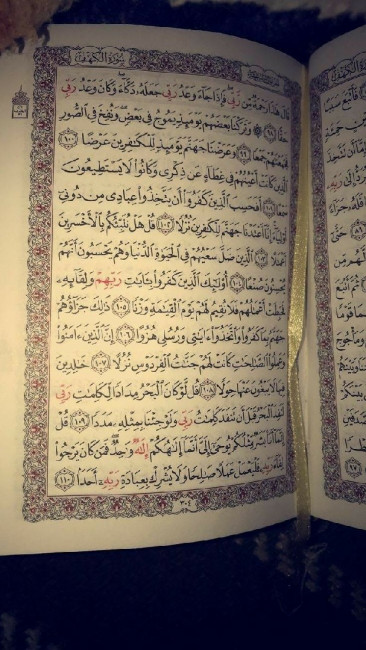 سورة الكهف
قال هذا رحمة من ربي فإذا جاء وعد ربي جعله دكاء وكان وعد ربي
حقا ٩٨ وتركنا بعضهم يومئذ يموج في بعض ونفخ في الصور
فجمعناهم جمعا ٩٩ وعرضنا جهنم يومئذ للكافرين عرضا ١٠٠
الذين كانت أعينهم في غطاء عن ذكري وكانوا لا يستطيعون
سمعا ١٠١ أفحسب الذين كفروا أن يتخذوا عبادي من دوني
أولياء إنا أعتدنا جهنم للكافرين نزلا ١٠٢ قل هل ننبئكم بالأخسرين
أعمالا ١٠٣ الذين ضل سعيهم في الحيوة الدنيا وهم يحسبون أنهم
يحسنون صنعا ١٠٤ أولئك الذين كفروا بآيات ربهم ولقائه
فحبطت أعمالهم فلا نقيم لهم يوم القيمة وزنا ١٠٥ ذلك جزاؤهم
جهنم بما كفروا واتخذوا آياتي ورسلي هزوا ١٠٦ إن الذين ءامنوا
وعملوا الصالحات كانت لهم جنات الفردوس نزلا ١٠٧ خالدين
فيها لا يبغون عنها حولا ١٠٨ قل لو كان البحر مدادا لكلمات ربي
لنفد البحر قبل أن تنفد كلمات ربي ولو جئنا بمثله مددا ١٠٩ قل
إنما أنا بشر مثلكم يوحى إلي أنما إلهكم إله واحد فمن كان يرجوا
لقاء ربه فليعمل عملا صالحا ولا يشرك بعبادة ربه أحدا ١١٠
٣٠٤